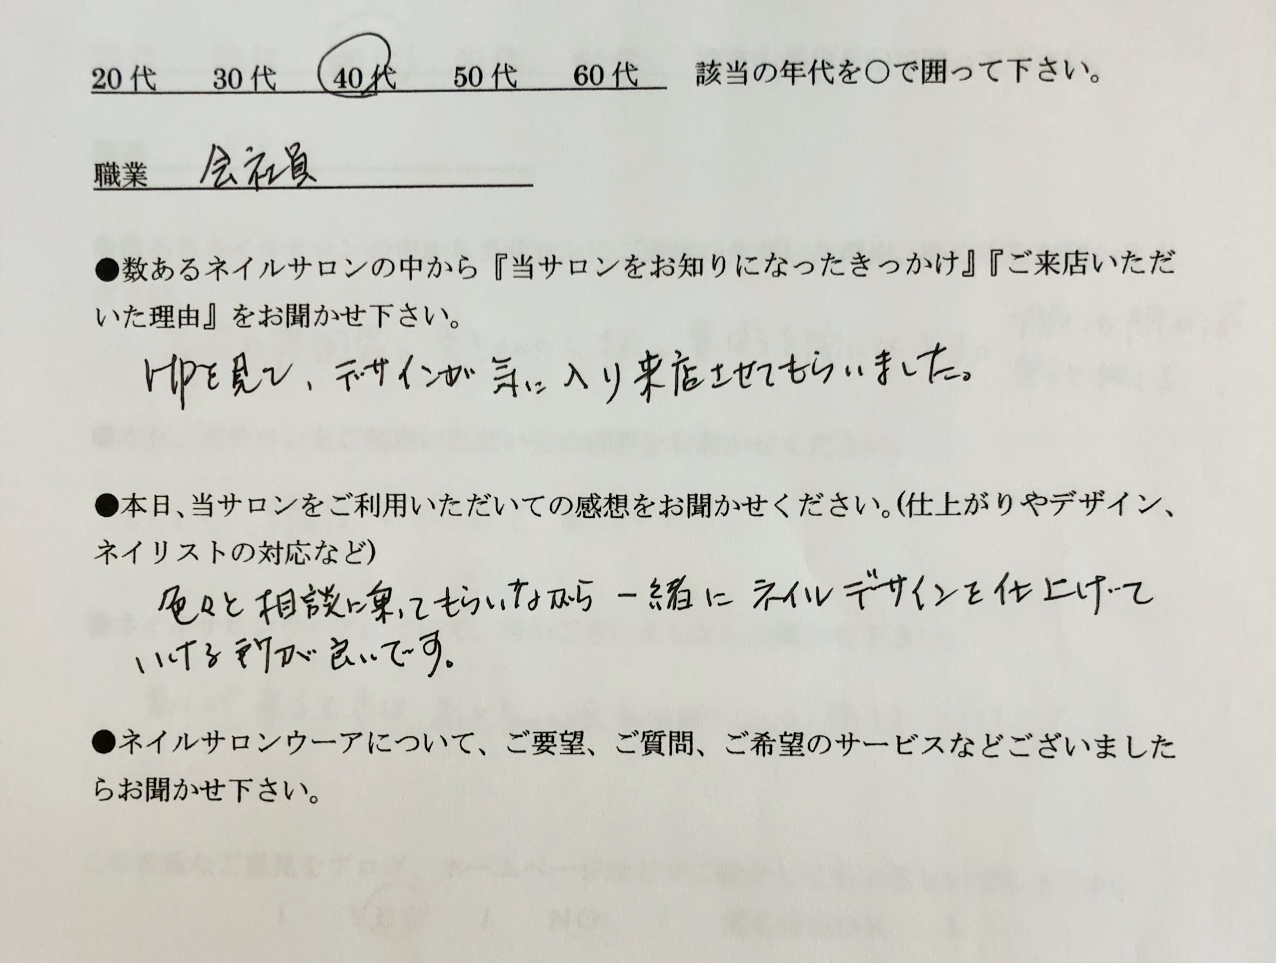 20代 30代 40代 50代 60代 該当の年代を〇で囲って下さい。
職業 会社員
●数あるネイルサロンの中から『当サロンをお知りになったきっかけ』『ご来店いただ
いた理由』をお聞かせ下さい。
HPを見て、デザインが気に入り来店させてもらいました。
●本日、当サロンをご利用いただいての感想をお聞かせください。(仕上がりやデザイン、
ネイリストの対応など)
色々と相談に乗ってもらいながら一緒にネイルデザインを仕上げて
いける所が良いです。
●ネイルサロンウーアについて、ご要望、ご質問、ご希望のサービスなどございました
らお聞かせ下さい。